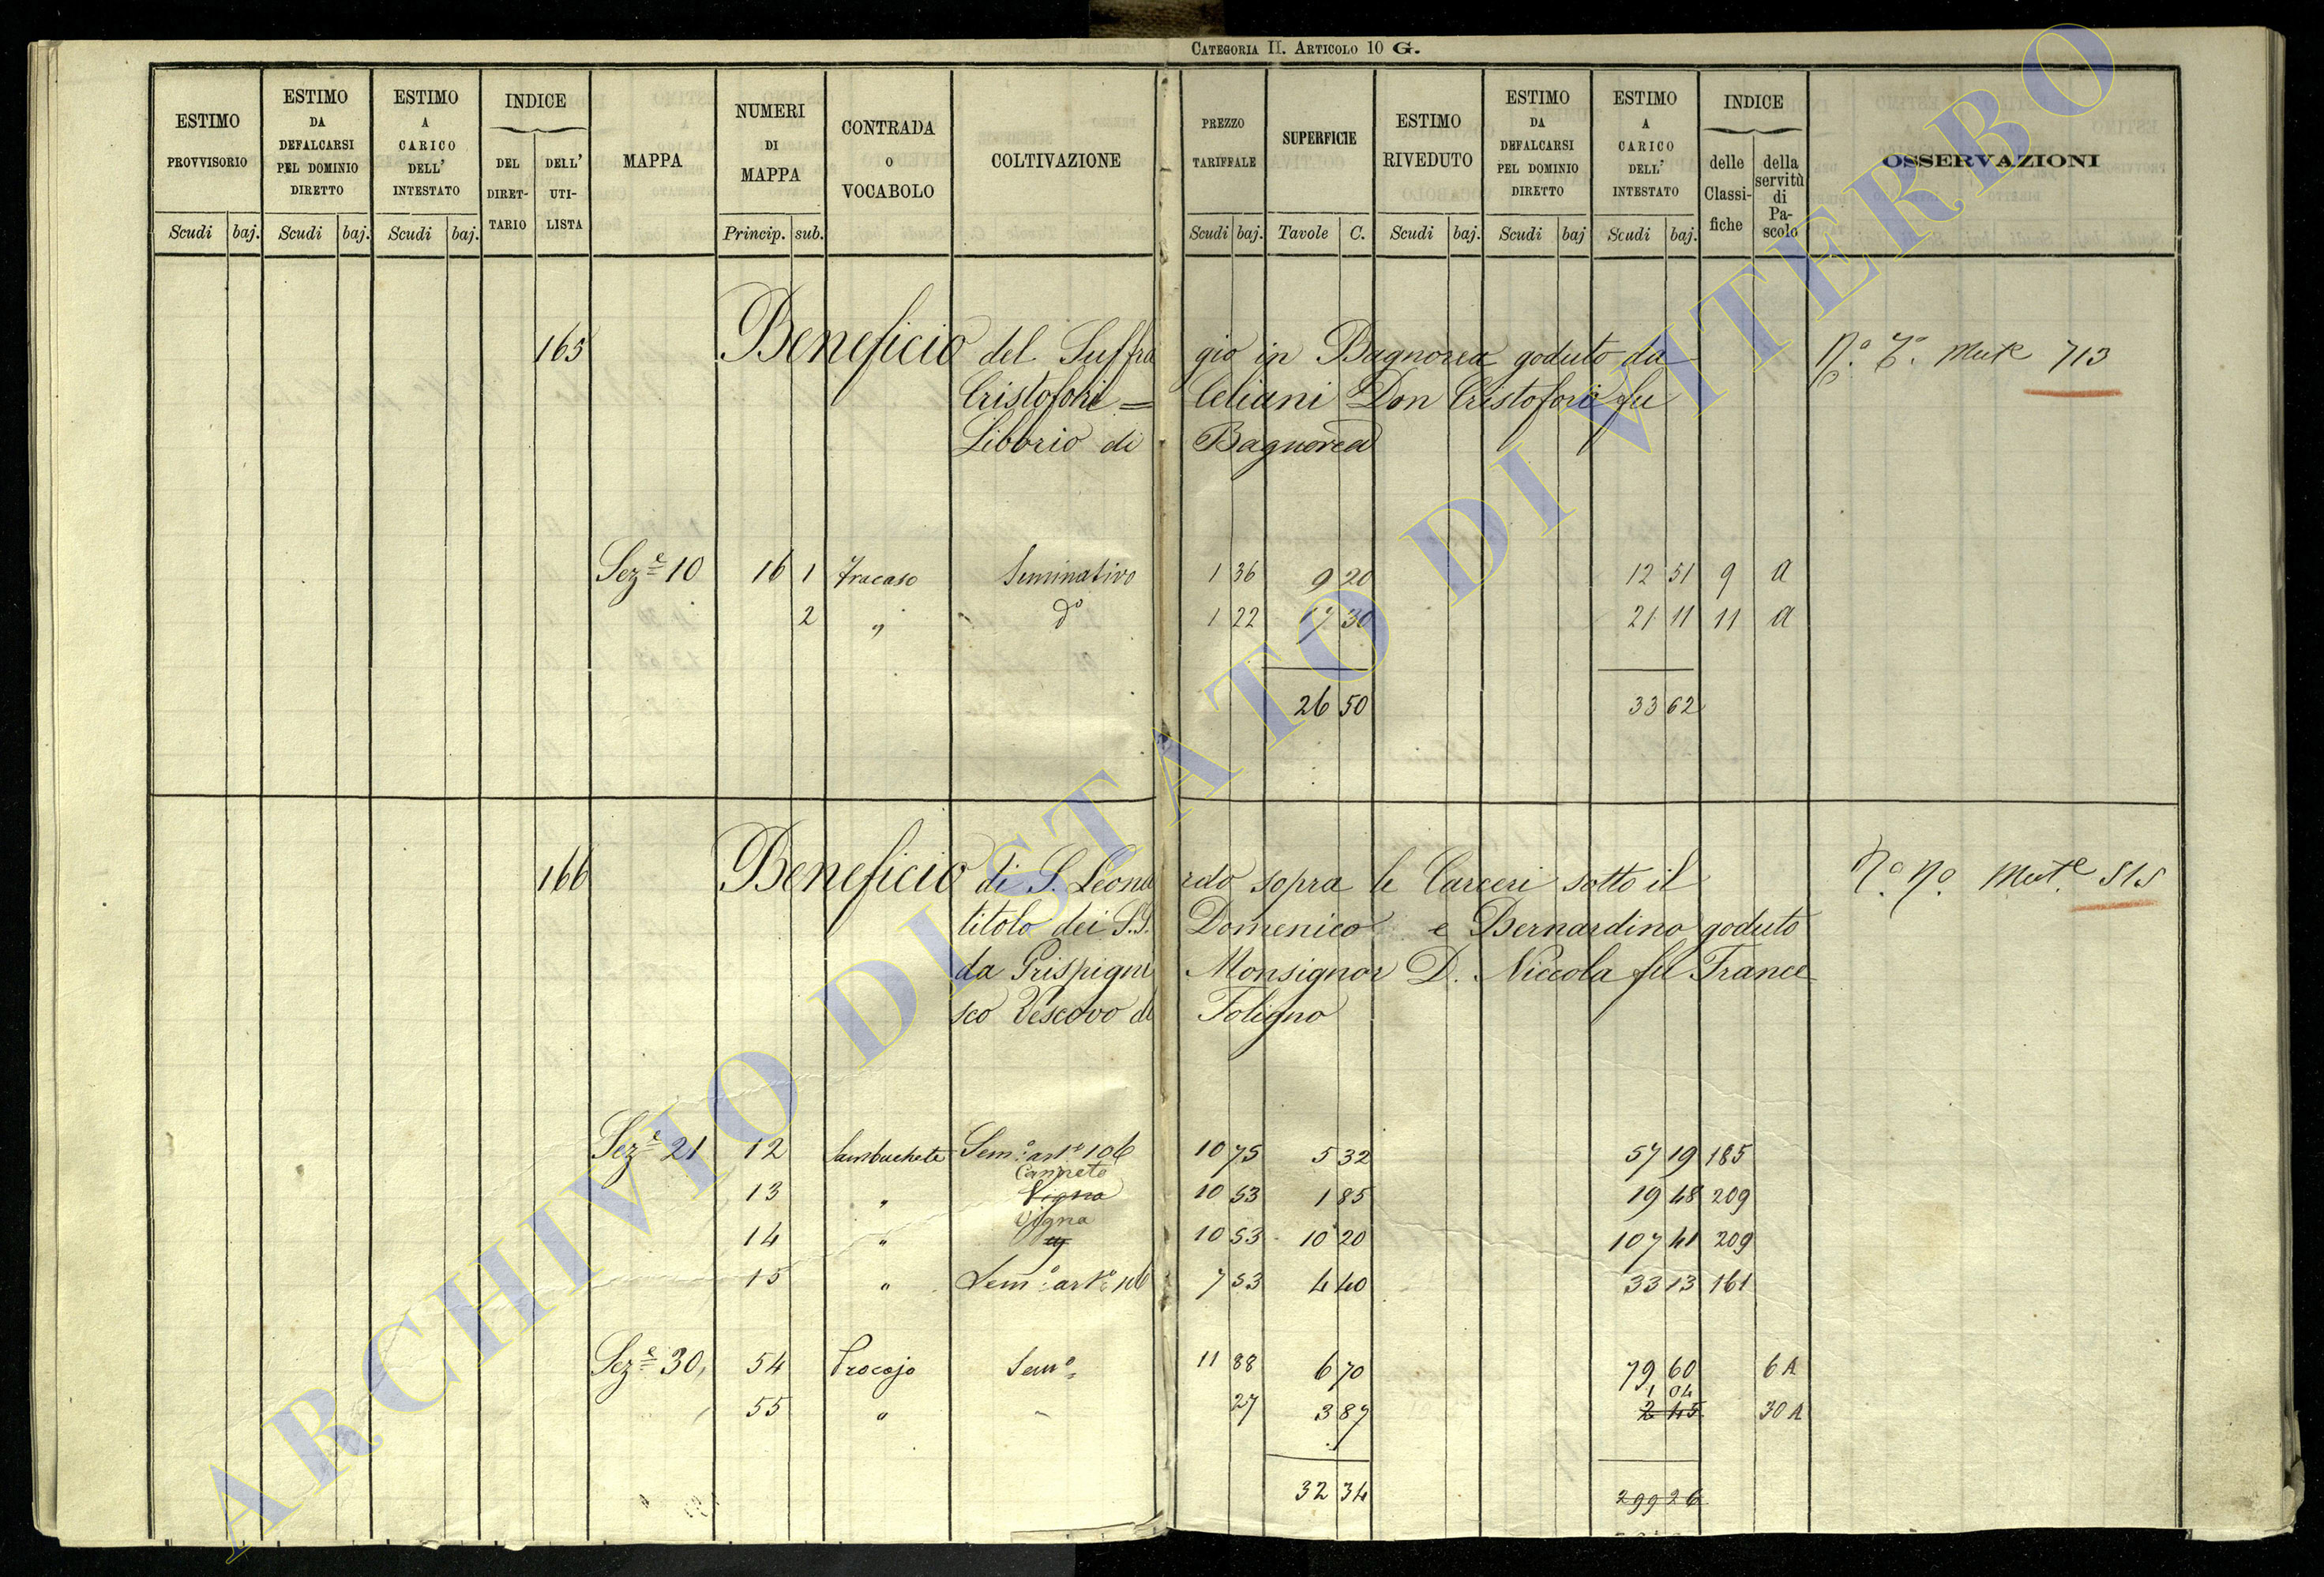 CATEGORIA II. ARTICOLO 10 G.
ESTIMO PROVVISORIO Scudi baj.
ESTIMO DA DEFALCARSI PEL DOMINIO DIRETTO Scudi baj.
ESTIMO A CARICO DELL' INTESTATO Scudi baj.
INDICE DEL DIRET-TARIO DELL' UTI-LISTA
MAPPA
NUMERI DI MAPPA Princip. sub.
CONTRADA O VOCABOLO
COLTIVAZIONE
PREZZO TARIFFALE Scudi baj.
SUPERFICIE Tavole C.
ESTIMO RIVEDUTO Scudi baj.
ESTIMO DA DEFALCARSI PEL DOMINIO DIRETTO Scudi baj
ESTIMO A CARICO DELL' INTESTATO Scudi baj.
INDICE delle Classi-fiche della servitù di Pa-scolo
OSSERVAZIONI
165 Beneficio del Suffragio in Bagnorea goduto da
Cristofori = Celiani Don Cristofori fu
Liborio di Bagnorea
713
Seze 10 16 1 Fracaso Seminativo 1 36 9 20 12 51 9 A
2 " do 1 22 17 30 21 11 11 A
26 50 33 62
166 Beneficio di S. Leonardo sopra le Carceri sotto il
titolo dei S.S. Domenico e Bernardino goduto
da Grispigni Monsignor D. Niccola fu France
sco Vescovo di Foligno
Mute 515
Seze 21 12 Sambuchete Semo arto 106 10 75 5 32 57 19 185
Canneto
13 " Vigna 10 53 1 85 19 48 209
Vigna
14 " " 10 53 10 20 107 41 209
15 " Semo arto 106 7 53 4 40 33 13 161
Seze 30 54 Procojo Semo 11 88 6 70 79 60 6 A
1 04
55 " 27 3 87 2 45 30 A
32 34 299 26
ARCHIVIO DI STATO DI VITERBO